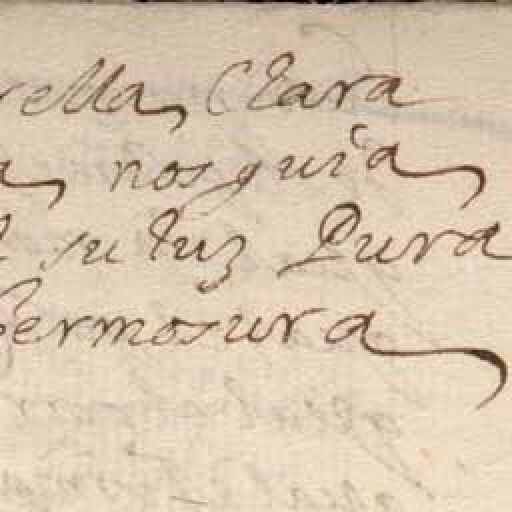 rella Clara
a nos guia
l su luz Pura
hermosura